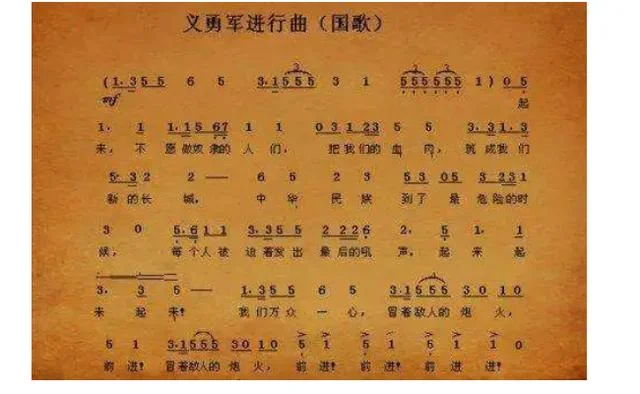 义勇军进行曲（国歌）
(1. 3 5 5 6 5 3. 1 5 5 5 3 1 5 5 5 5 5 5 1) 0 5
mf 起
1. 1 1. 1 5 6 7 1 1 0 3 1 2 3 5 5 3. 3 1. 3
来，不愿做奴隶的人们，把我们的血肉，筑成我们
5. 3 2 2 —— 6 5 2 3 5 3 0 5 3 2 3 1
新的长城，中华民族到了最危险的时
3 0 5. 6 1 1 3. 3 5 5 2 2 2 6 2. 5 1. 1
候，每个人被迫着发出最后的吼声，起来起
3. 3 5 —— 1. 3 5 5 6 5 3. 1 5 5 5 3 0 1 0
来起来！我们万众一心，冒着敌人的炮火，
5 1 3. 1 5 5 5 3 0 1 0 5 1 5 1 5 1 1
前进！冒着敌人的炮火，前进！前进！前进！进！